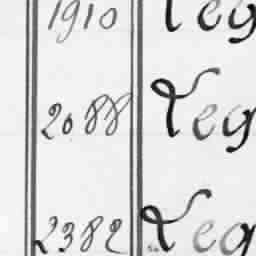 1910 Leg
2088 Leg
2382 Leg